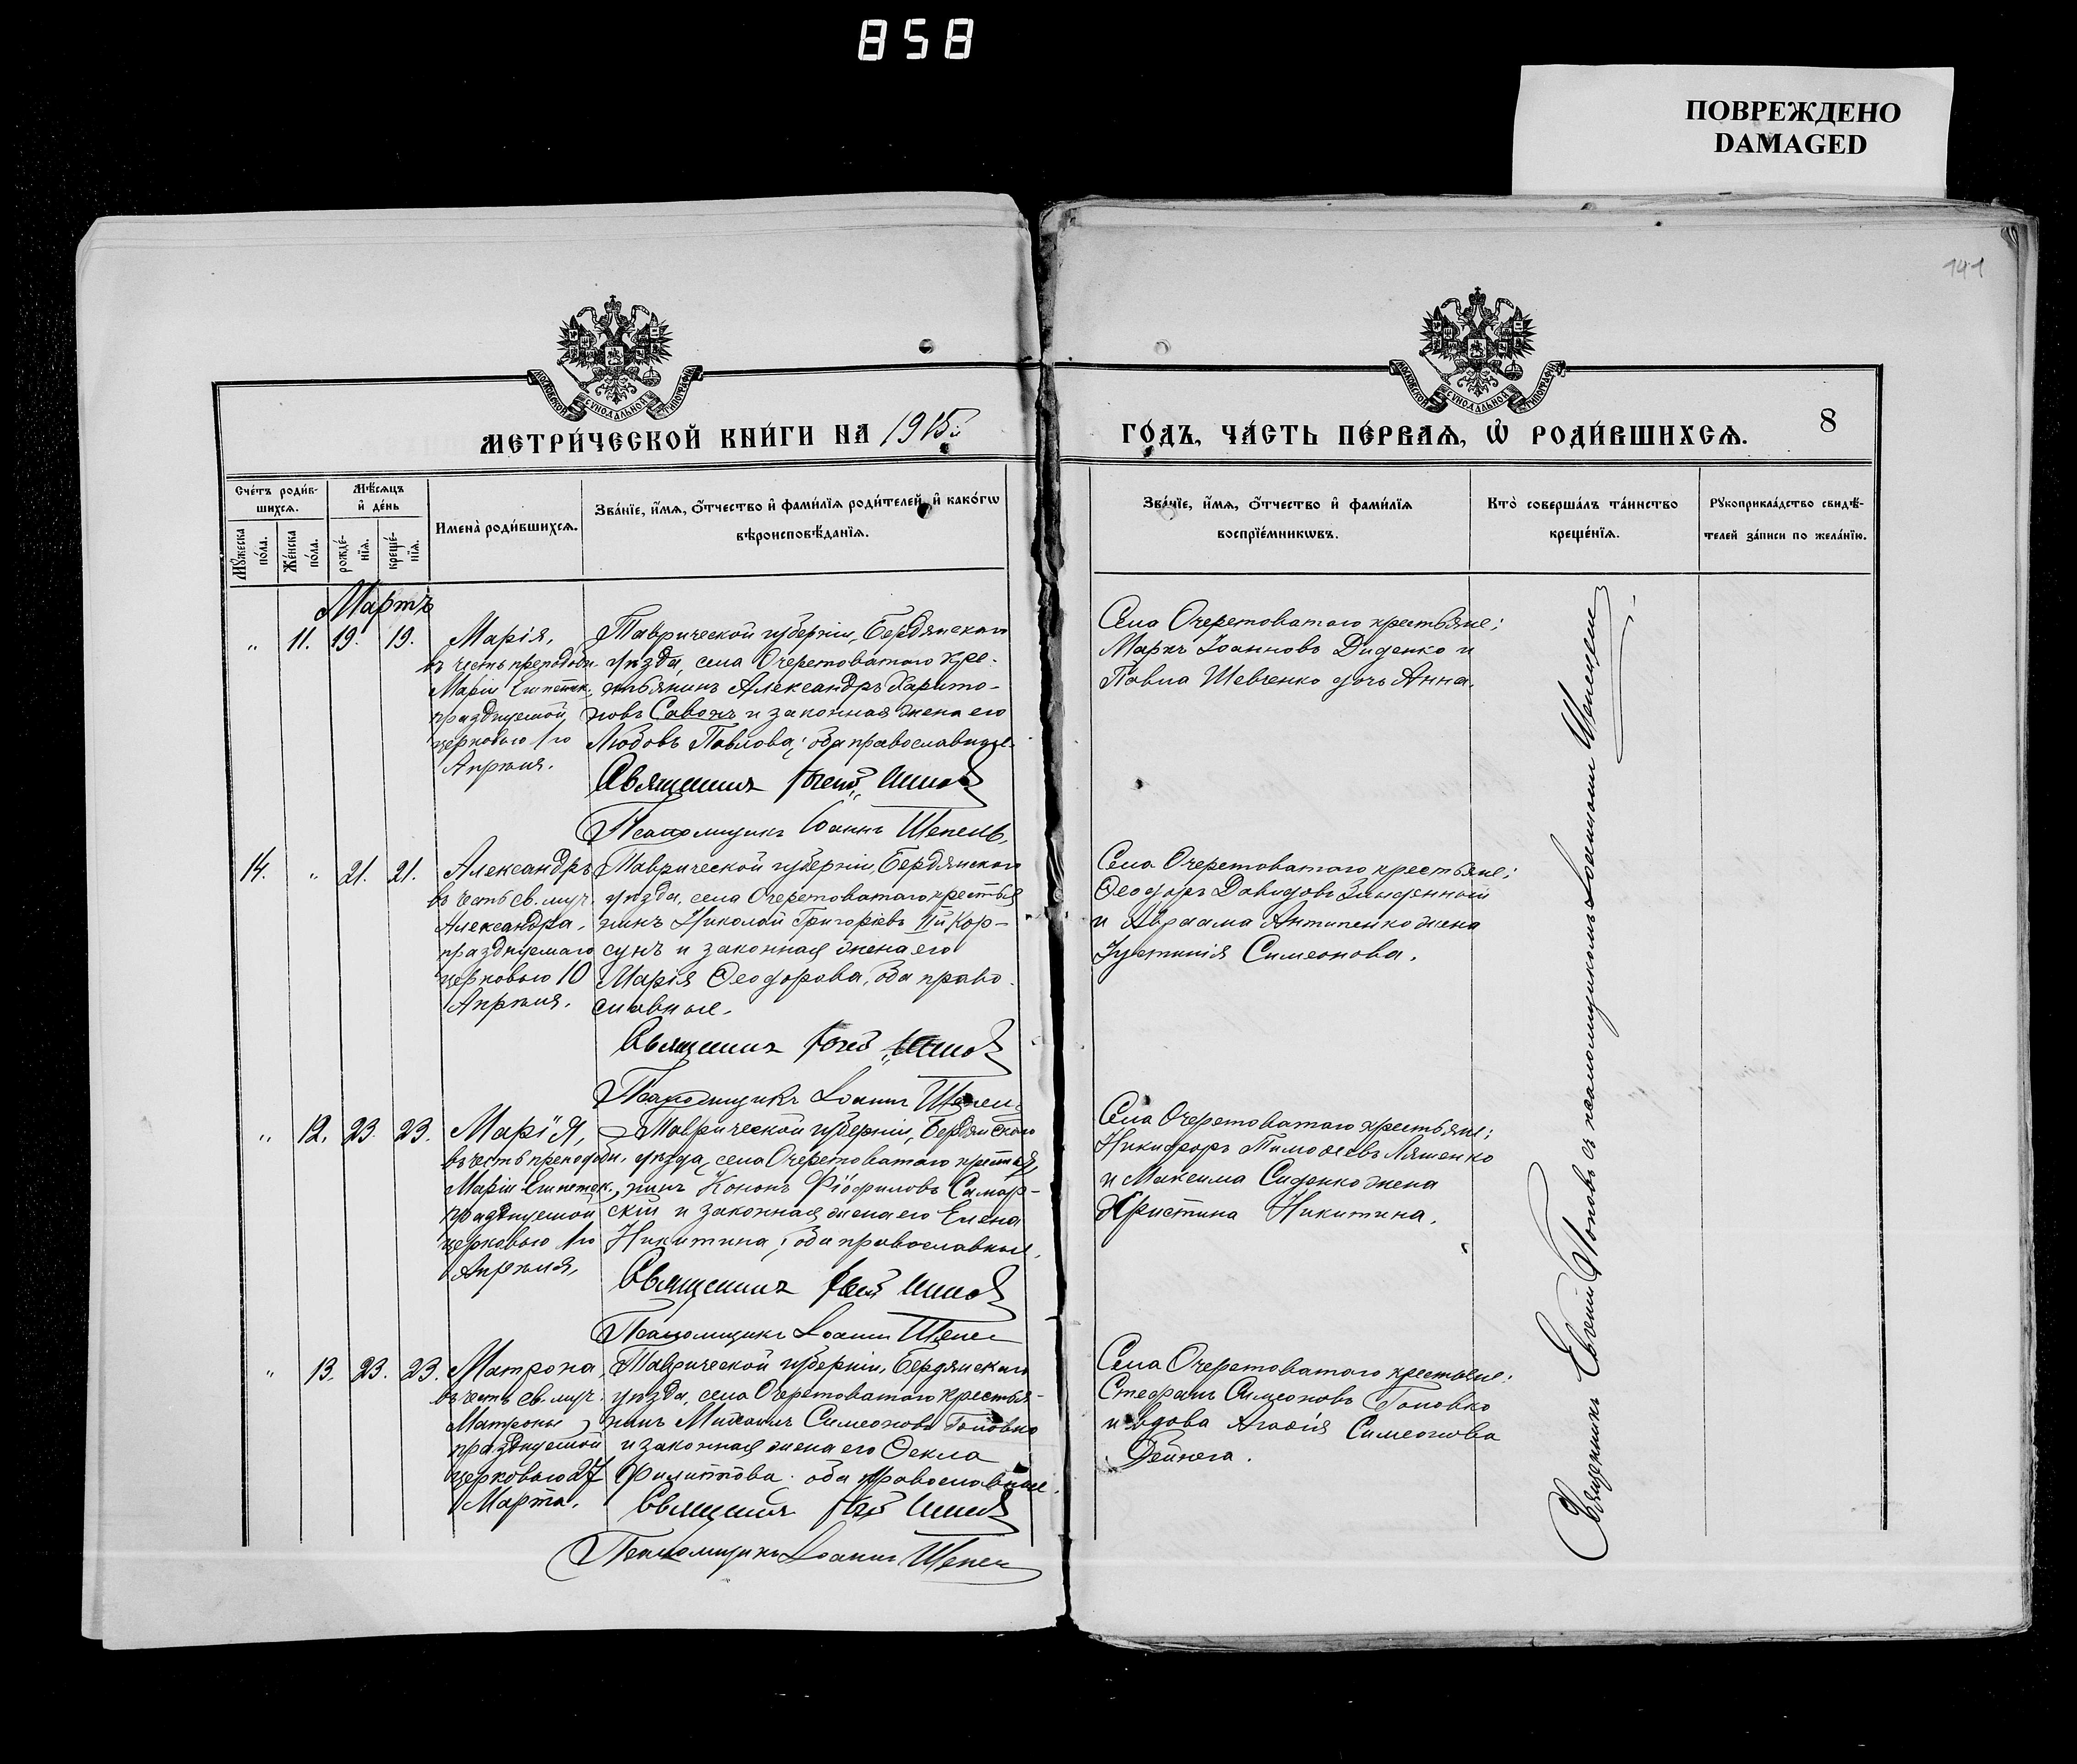 858
ПОВРЕЖДЕНО
DAMAGED
141
МОСКОВСКОЙ СѴНОДАЛЬНОЙ ТИПОГРАФІИ
МОСКОВСКОЙ СѴНОДАЛЬНОЙ ТИПОГРАФІИ
МЕТРИ́ЧЕСКОЙ КНИ́ГИ НА 1915й
ГО́ДЪ, ЧА́СТЬ ПЕ́РВАЯ, Ѡ҆ РОДИ́ВШИХСЯ.
8
Сче́тъ роди́в-
шихся.
Мѣ́сяцъ
и҆ де́нь
Му́жеска
по́ла.
Же́нска
по́ла.
рожде́-
нїя.
креще́-
нїя.
Имена̀ роди́вшихся.
Зва́нїе, и҆́мя, ѻ҆́тчество и҆ фами́лїя роди́телей, и҆ како́гѡ
вѣроисповѣ́данїя.
Зва́нїе, и҆́мя, ѻ҆́тчество и҆ фами́лїя
воспрїе́мникѡвъ.
Кто̀ соверша́лъ та́инство
креще́нїя.
Рꙋкоприкла́дство свидѣ́-
телей за́писи по жела́нїю.
Мартъ
„ 11. 19. 19.
Марія,
въ честь преподобн.
Маріи Египетск.,
празднуемой
церковью 1го
Апрѣля.
Таврической губерніи, Бердянскаго
уѣзда, села Очеретоватаго кре-
стьянинъ Александръ Харито-
новъ Савонъ и законная жена его
Любовь Павлова; оба православные.
Священникъ
Псаломщикъ Іоаннъ Шепель.
Села Очеретоватаго крестьяне:
Маркъ Іоанновъ Диденко и
Павла Шевченко дочь Анна.
14. „ 21. 21.
Александръ
въ честь св. муч.
Александра,
празднуемаго
церковью 10
Апрѣля.
Таврической губерніи, Бердянскаго
уѣзда, села Очеретоватаго крестья
нинъ Николай Григоріевъ IIй Кор-
сунъ и законная жена его
Марія Ѳеодорова, оба право-
славные.
Священникъ
Псаломщикъ Іоаннъ Шепель
Села Очеретоватаго крестьяне:
Ѳеодоръ Давидовъ
и Авраама Антипенко жена
Іустинія Симеонова.
„ 12. 23. 23.
Марія,
въ честь преподобн.
Маріи Египетск.,
празднуемой
церковью 1го
Апрѣля,
Таврической губерніи, Бердянскаго
уѣзда, села Очеретоватаго крестья
нинъ Кононъ Фіофиловъ Самар-
скій и законная жена его Елена
Никитина; оба православные.
Священникъ
Псаломщикъ Іоаннъ Шепель
Села Очеретоватаго крестьяне:
Никифоръ Тимоѳеевъ Ляшенко
и Максима Сиденко жена
Христина Никитина.
„ 13. 23. 23.
Матрона,
въ честь св. муч.
Матроны,
празднуемой
церковью 27
Марта.
Таврической губерніи, Бердянскаго
уѣзда, села Очеретоватаго крестья-
нинъ Симеоновъ Головко
и законная жена его Ѳекла
Филиппова: оба православные.
Священникъ
Псаломщикъ Іоаннъ Шепель
Села Очеретоватаго крестьяне:
Стефанъ Симеоновъ Головко
и вдова Агаѳія Симеонова
Дейнега.
Священникъ Евгеній Поповъ съ псаломщикомъ Іоанномъ Шепелемъ